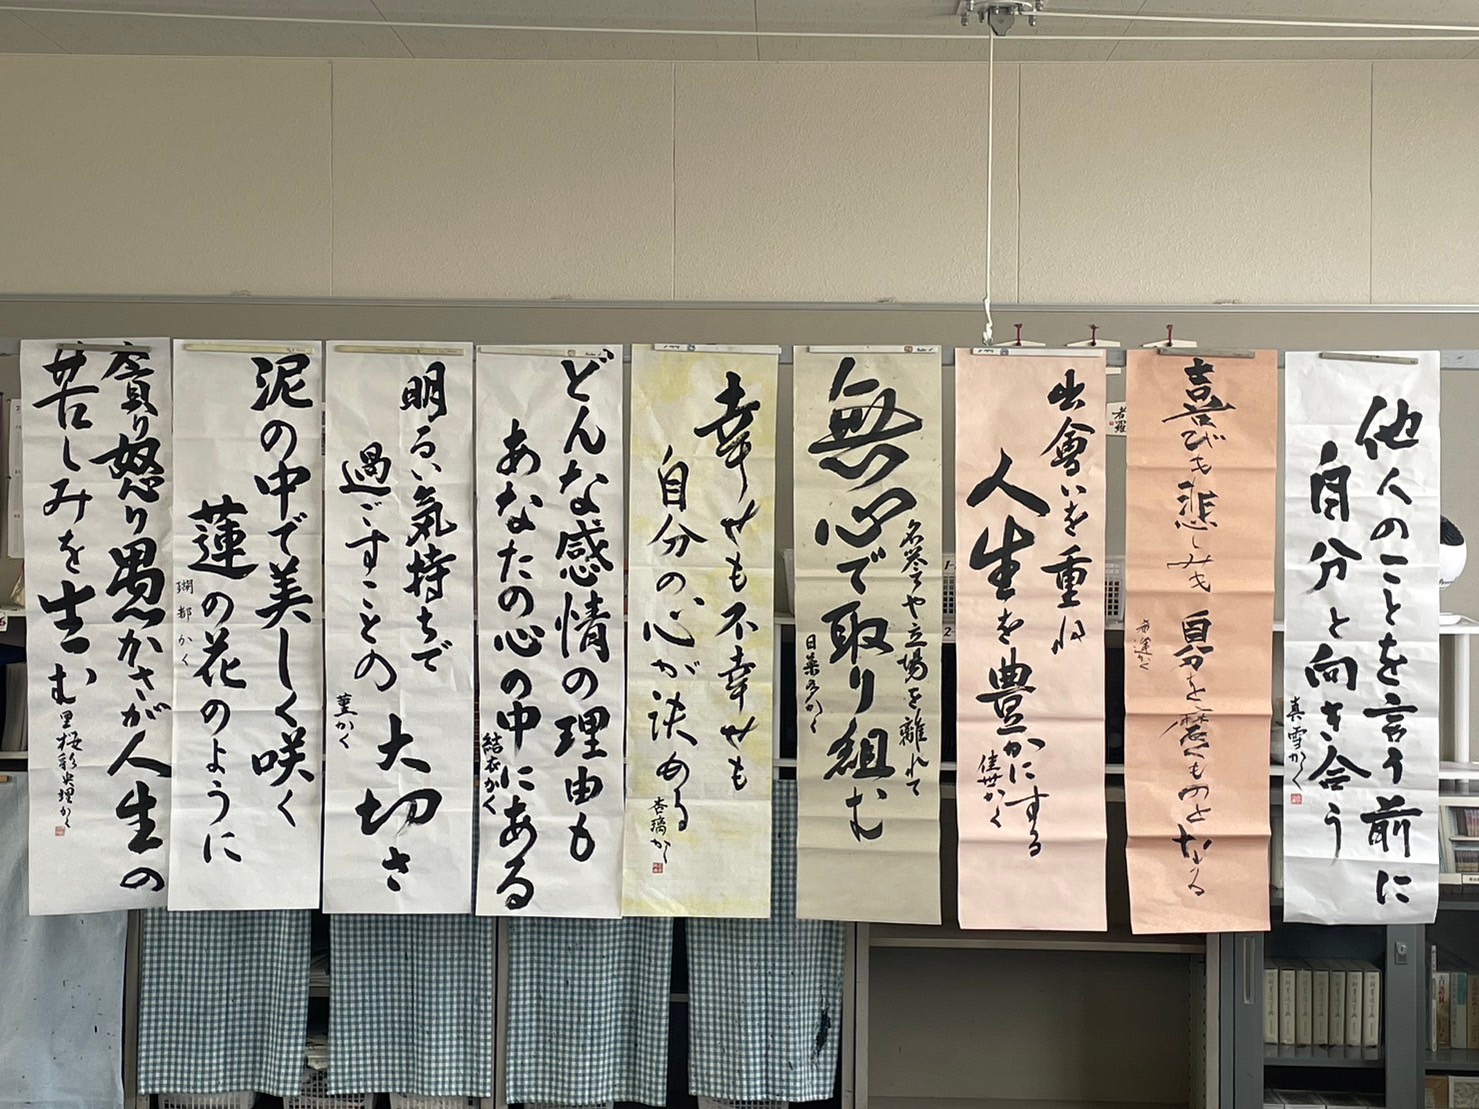 他人のことを言う前に
自分と向き合う
真雪かく
喜びも悲しみも自分を磨くものとなる
出會いを重ね
人生を豊かにする
佳世かく
無心で取り組む
名誉や立場を離れて
日菜乃かく
幸せも不幸せも
自分の心が決める
杏璃かく
どんな感情の理由も
あなたの心の中にある
結衣かく
明るい気持ちで
過ごすことの大切さ
菫かく
泥の中で美しく咲く
蓮の花のように
瑚都かく
貪り怒り愚かさが人生の
苦しみを生む